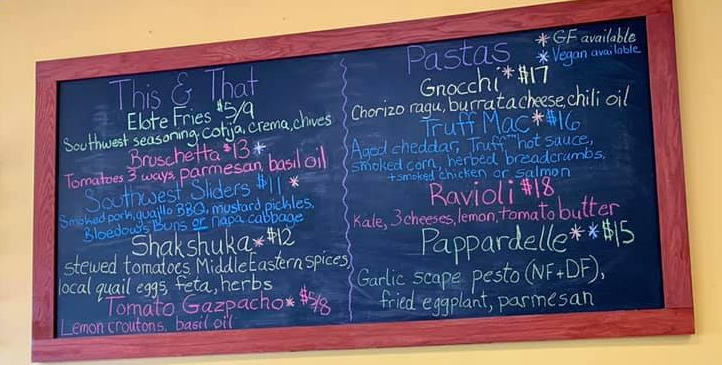 This & That
Elote Fries $5/9
Southwest seasoning, cotija, crema, chives
Bruschetta $13 *
Tomatoes 3 ways, parmesan, basil oil
Southwest Sliders $11 *
Smoked pork, guajillo BBQ, mustard pickles,
Bloedow's Buns or napa cabbage
Shakshuka * $12
stewed tomatoes, Middle Eastern spices,
local quail eggs, feta, herbs
Tomato Gazpacho * $5/8
Lemon croutons, basil oil
Pastas
* GF available
* Vegan available
Gnocchi * $17
Chorizo ragu, burrata cheese, chili oil
Truff Mac * $16
Aged cheddar, Truff™ hot sauce,
smoked corn, herbed breadcrumbs,
+ smoked chicken or salmon
Ravioli $18
Kale, 3 cheeses, lemon, tomato butter
Pappardelle * * $15
Garlic scape pesto (NF+DF),
fried eggplant, parmesan